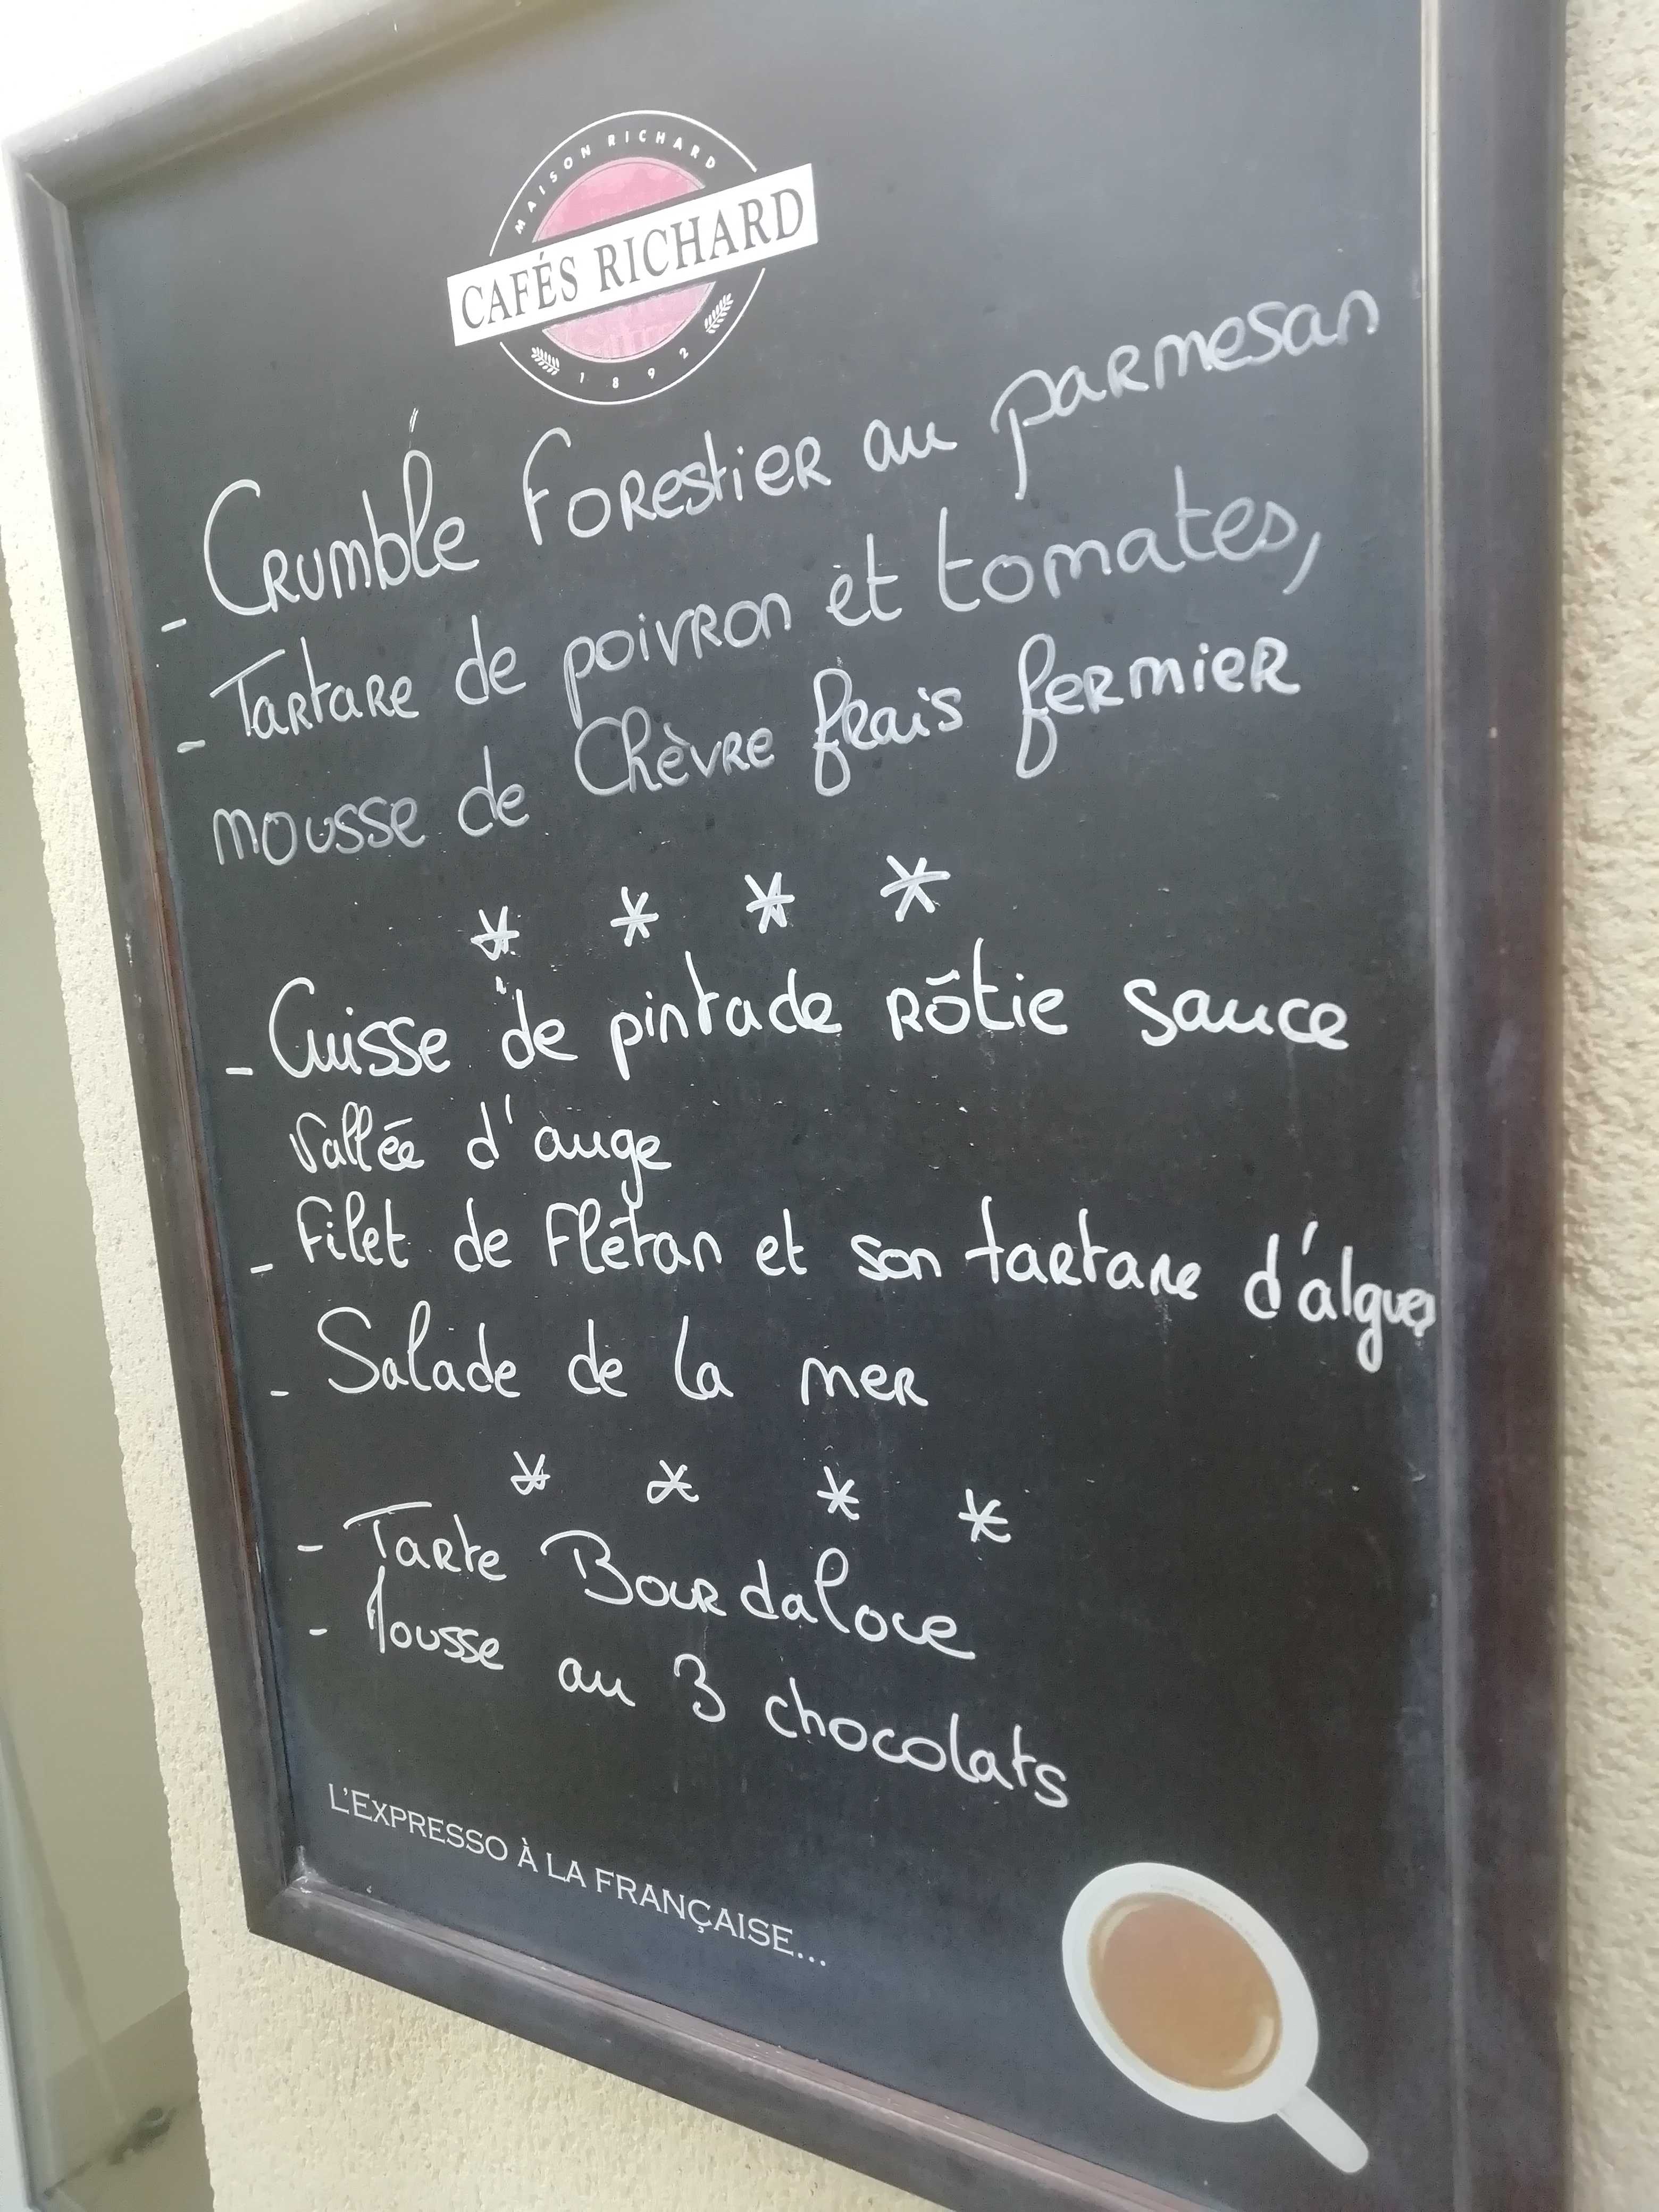 MAISON RICHARD
CAFÉS RICHARD
1892
- Crumble Forestier au parmesan
- Tartare de poivron et tomates,
mousse de Chèvre frais fermier
* * * *
- Cuisse de pintade rôtie sauce
Vallée d'auge
- Filet de Flétan et son tartare d'algues
- Salade de la mer
* * * *
- Tarte Bourdaloue
- Mousse au 3 chocolats
L'EXPRESSO À LA FRANÇAISE...